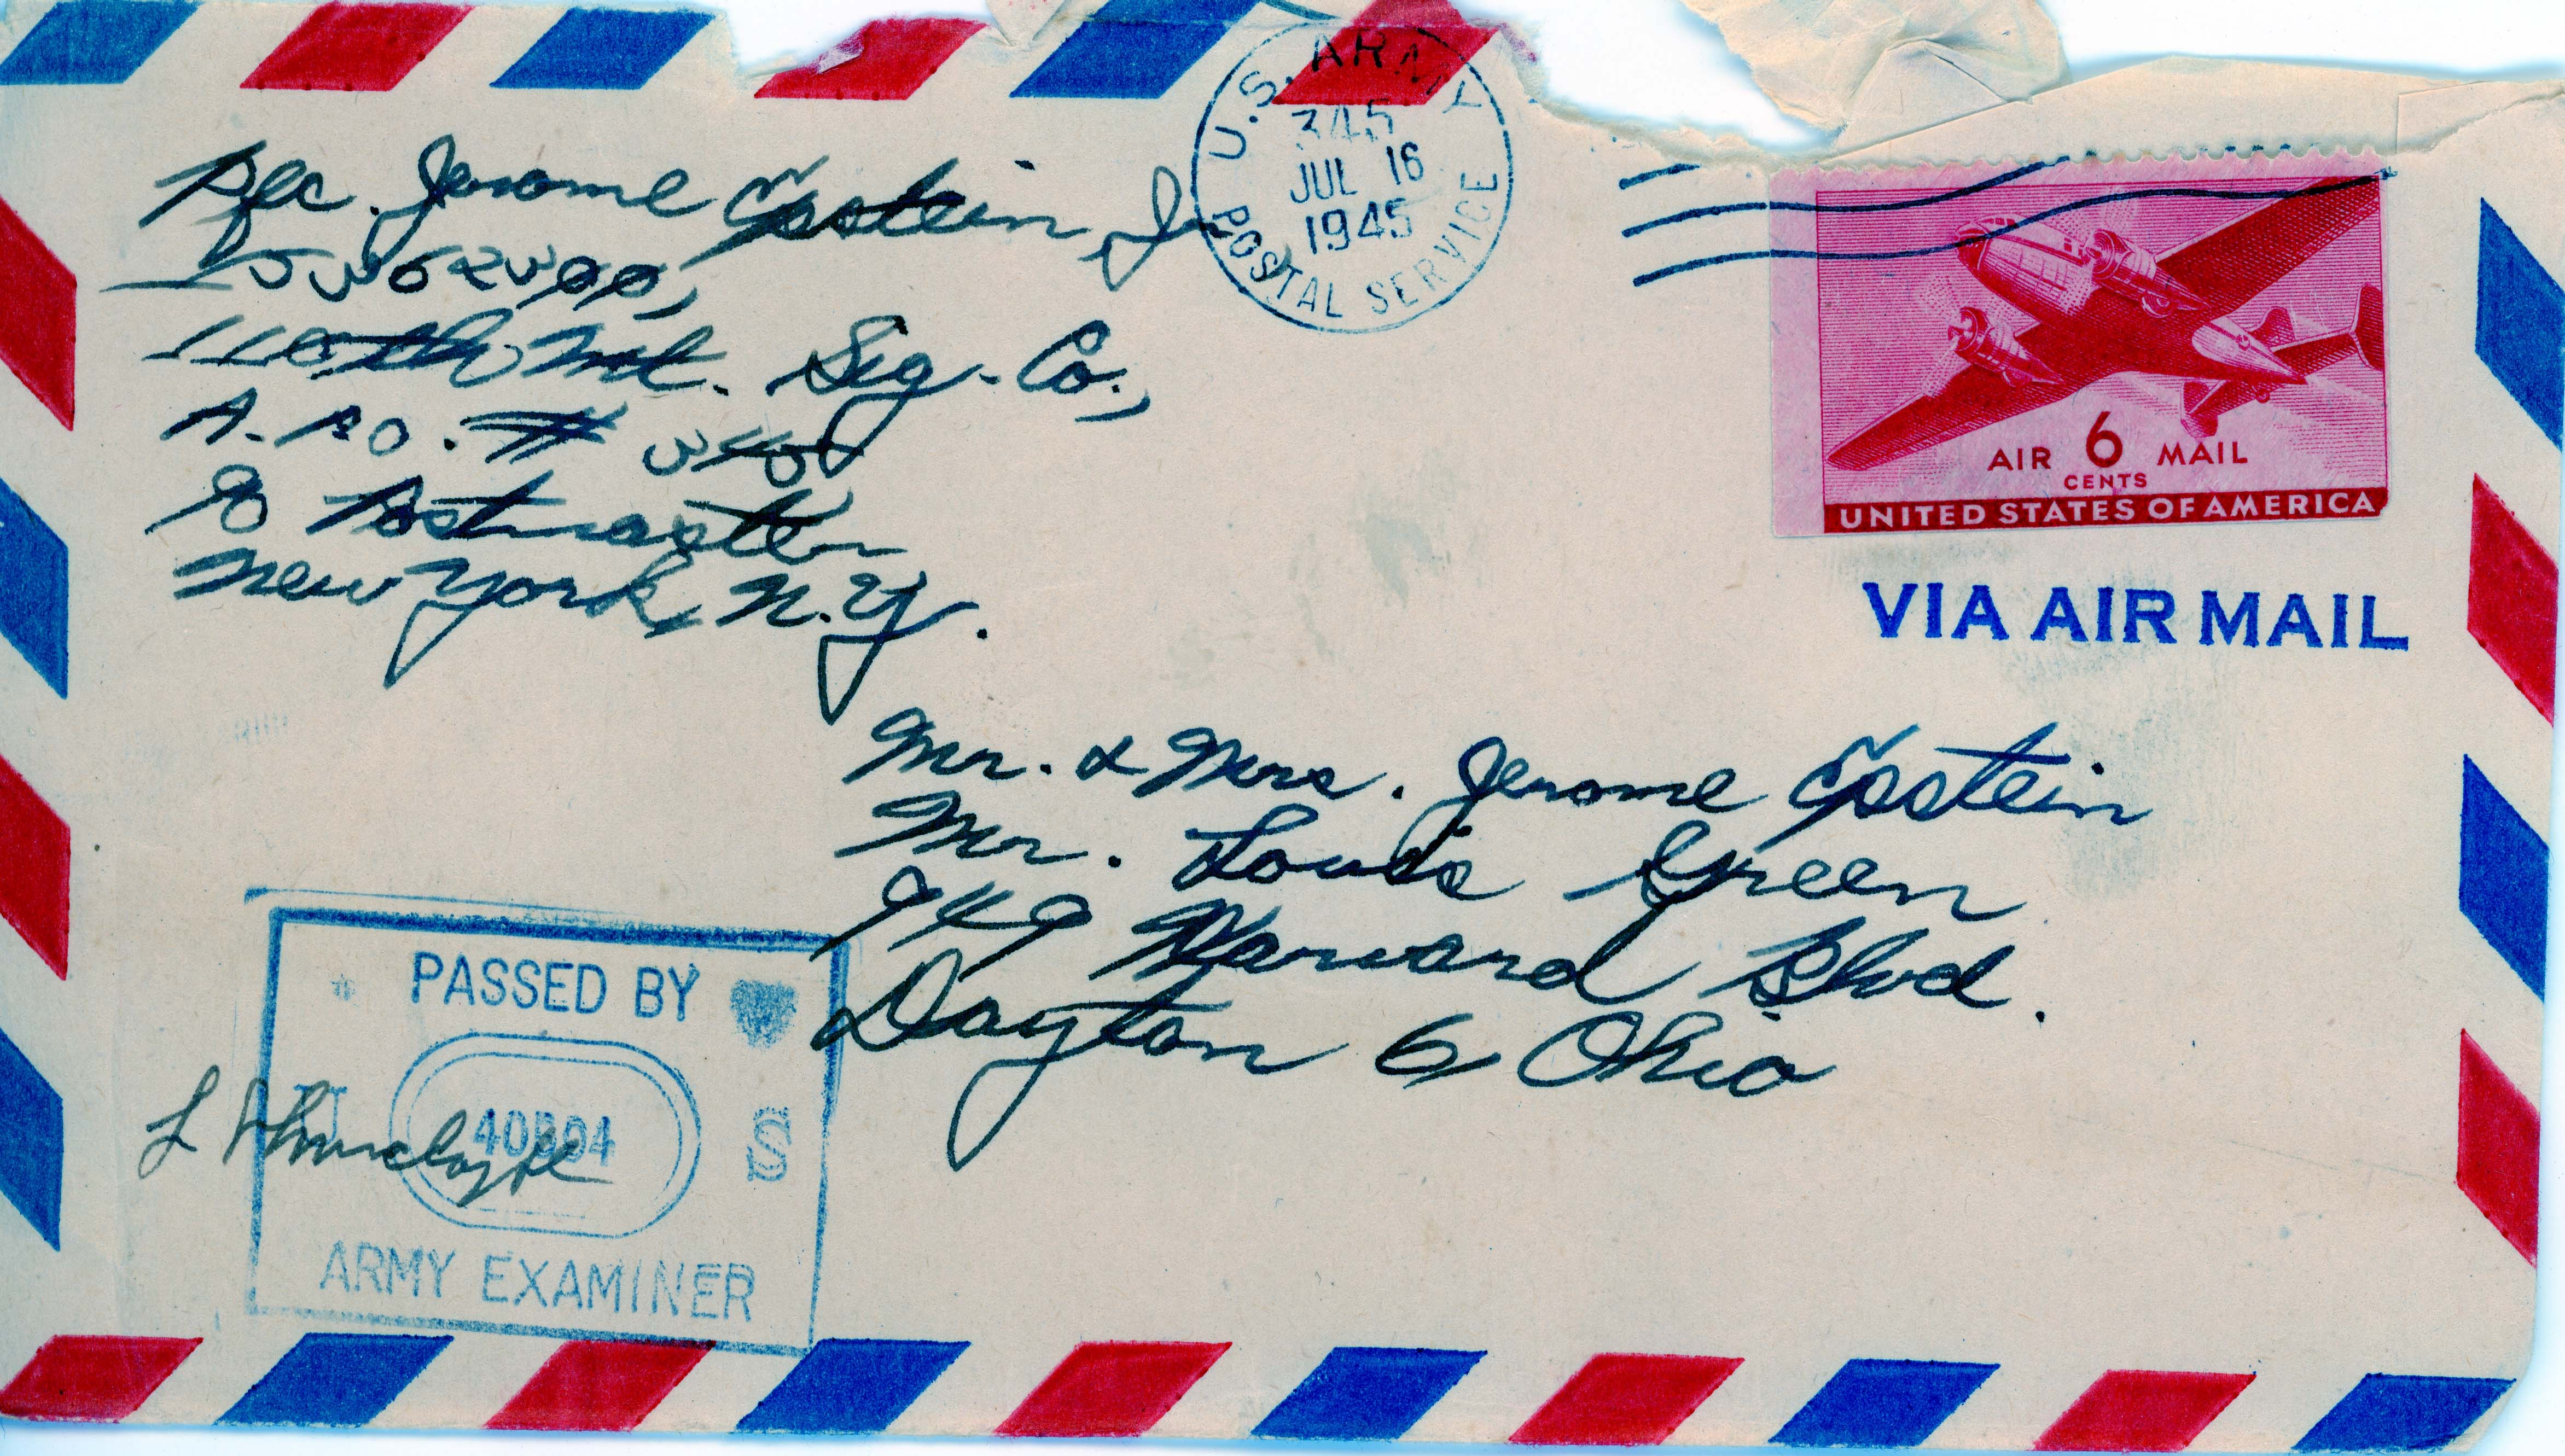 Pfc. Jerome Epstein Jr.
Sig. Co.,
A.P.O. # 345
c/o Postmaster
New York, N.Y.
U.S. ARMY
345
JUL 16
1945
POSTAL SERVICE
AIR 6 MAIL
CENTS
UNITED STATES OF AMERICA
VIA AIR MAIL
Mr. & Mrs. Jerome Epstein
Mr. Louis Green
949 Harvard Blvd.
Dayton 6, Ohio
PASSED BY
U S
ARMY EXAMINER